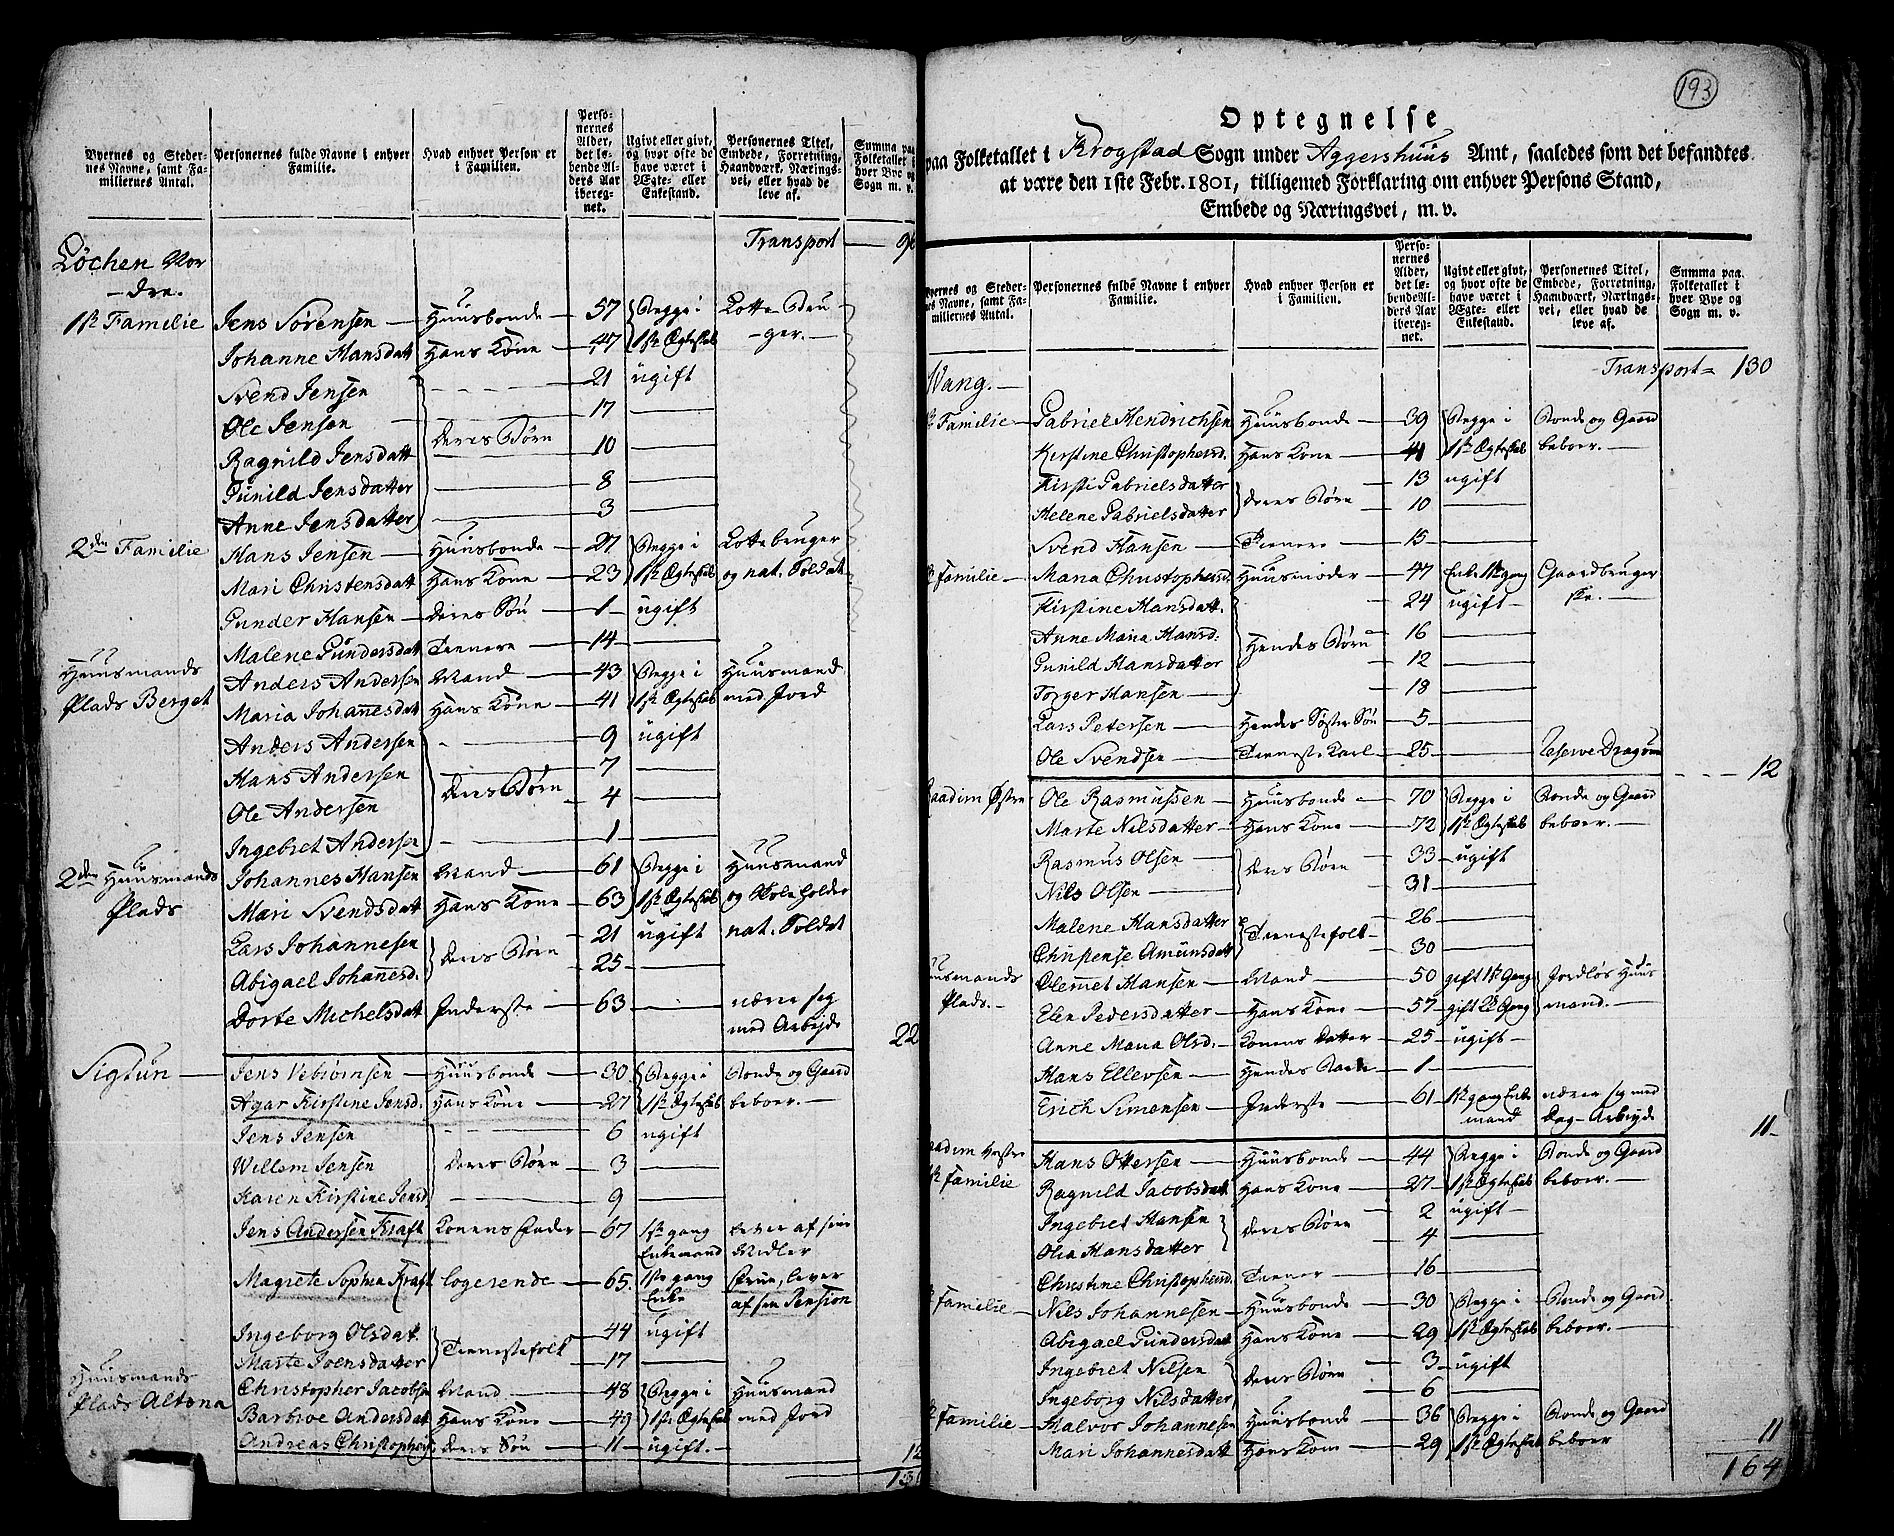 Byernes og Steder-
nes Navne, samt Fa-
miliernes Antal.
Personernes fulde Navne i enhver
Familie.
Hvad enhver Person er
i Familien.
Perso-
nernes
Alder,
det lø-
bende Al-
ders Aar
iberegnet.
Ugivt eller givt,
og hvor ofte de
have været i
Ægte- eller
Enkestand.
Personernes Titel,
Embede, Forretning,
Haandværk, Nærings-
vei, eller hvad de
leve af.
Summa paa
Folketallet i
hver Bye og
Sogn m. v.
Transport — 96
Løchen Nor
dre.
1ste Familie Jens Sørensen — Huusbonde — 57 Begge i Lotte Bru
Johanne Hansdatt Hans Kone — 47 1ste Ægteskab ger.
Svend Jensen — 21 ugift
Ole Jensen — 17 —
Ragnild Jensdatt Deres Børn — 10 —
Gunild Jensdatter — 8 —
Anne Jensdatter — 3 —
2den Familie Hans Jensen — Huusbonde — 27 Begge i Lottebruger
Mari Christensdatt Hans Kone — 23 1ste Ægteskab og nat. Soldat
Gunder Hansen — Deres Søn — 1 — ugift
Malene Gundersdatt Tienere — 14 —
Huusmands Anders Andersen Mand — 43 Begge i Huusmand
Plads Berget Maria Johannesdat Hans Kone — 41 1ste Ægteskab med Jord
Anders Andersen — 9 ugift
Hans Andersen — 7 —
Ole Andersen Deres Børn — 4 —
Ingebret Andersen — 1 —
2den Huusmands Johannes Hansen Mand — 61 Begge i Huusmand
Plads Mari Svendsdatt Hans Kone — 63 1ste Ægteskab og Skoleholder
Lars Johannesen Deres Børn — 21 ugift nat. Soldat
Abigael Johanesd. 25 —
Dorte Michelsdatt Inderste — 63 — nærer sig
med Arbejde 22
Sigtun — Jens Vebiørnsen — Huusbonde — 30 Begge i Bonde og Gaard
Agar Kirstine Jensd. Hans Kone — 27 1ste Ægteskab beboer.
Jens Jensen — 6 ugift
Willem Jensen Deres Børn — 3 —
Karen Kirstine Jensd — 9 —
Jens Andersen Kraft Konens Fader — 67 1ste gang Lever af sine
Enkemand Midler
Magrete Sophia Kraft logerende — 65. 1ste gang Frue, lever
Enke af sin Pension
Ingeborg Olsdat. Tienestefolk — 44 ugift
Marte Joensdatter 17 —
Huusmands Christopher Jacobsen Mand — 48 Begge i Huusmand
Plads Altona Barbroe Andersdatt Hans Kone — 49 1ste Ægteskab med Jord
Andreas Christophers Deres Søn — 11 — ugift. — 12
130
193
Optegnelse
paa Folketallet i Krogstad Sogn under Aggershuus Amt, saaledes som det befandtes
at være den 1ste Febr. 1801, tilligemed Forklaring om enhver Persons Stand,
Embede og Næringsvei, m. v.
Byernes og Steder-
nes Navne, samt Fa-
miliernes Antal.
Personernes fulde Navne i enhver
Familie.
Hvad enhver Person er
i Familien.
Perso-
nernes
Alder,
det lø-
bende Aar
ders Aar
ibereg-
net.
Ugivt eller givt,
og hvor ofte de
have været i
Ægte- eller
Enkestand.
Personernes Titel,
Embede, Forretning,
Haandværk, Nærings-
vei, eller hvad de
leve af.
Summa paa
Folketallet i
hver Bye og
Sogn m. v.
Transport = 130
Wang. —
Familie — Gabriel Hendrichsen Huusbonde — 39 Begge i Bonde og Gaard
Kirstine Christophersd. Hans Kone — 41 1ste Ægteskab beboer. —
Kirsti Gabrielsdatter Deres Børn — 13 ugift
Helene Gabrielsdatter 10 —
Svend Hansen — Tienere — 15 —
Familie — Maria Christophersd. Huusmoder — 47 Enke 1ste gang Gaardbruger
Kirstine Hansdatt. 24 ugift — ske. —
Anne Maria Hansd: Hendes Børn — 16 —
Gunild Hansdatter 12 —
Torger Hansen — 18 —
Lars Petersen — Hendes Søster Søn 5 —
Ole Svendsen — Tieneste Karl — 25 — Reserve Dragun
12
Raadim Østre Ole Rasmussen — Huusbonde — 70 Begge i Bonde og Gaard
Marte Nilsdatter — Hans Kone — 72 1ste Ægteskab beboer. —
Rasmus Olsen Deres Børn — 33 ugift
Nils Olsen — 31 —
Malene Hansdatter Tienestefolk — 26 —
Christense Amundsdatt 30 —
Huusmands Clemmet Hansen — Mand — 50 gift 1ste Gang Jordløs Huus
Plads. — Elen Pedersdatter — Hans Kone — 57 gift 2d Gang mand. —
Anne Maria Olsd. — Konens Datter — 25 — ugift —
Hans Ellevsen — Hendes — 1 —
Erich Simensen — Inderste — 61 1ste gang Enke nærer sig med
mand Dag-Arbeyde 11 —
Raadim Vestre Hans Ottersen — Huusbonde — 44 Begge i Bonde og Gaard
1ste Familie Ragnild Jacobsdat Hans Kone — 27 1ste Ægteskab beboer. —
Ingebret Hansen Deres Børn — 2 ugift —
Olia Hansdatter 4 —
Christine Christophersd. Tiener — 16 —
Familie — Nils Johannesen — Huusbonde — 30 Begge i Bonde og Gaard
Abigael Gundersdat Hans Kone — 29 1ste Ægteskab beboer. —
Ingebret Nilsen Deres Børn — 3 — ugift
Ingeborg Nilsdatter 6 —
Familie — Halvor Johannesen Huusbonde — 36 Begge i Bonde og Gaard
Mari Johannesdatt Hans Kone — 29 1ste Ægteskab beboer 11
164